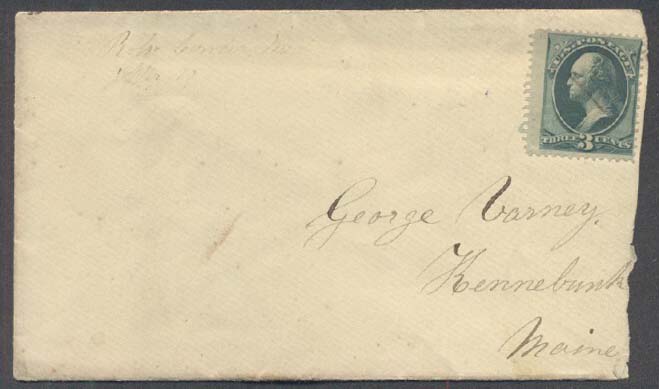 U.S. POSTAGE
THREE 3 CENTS
George Varney.
Kennebunk
Maine